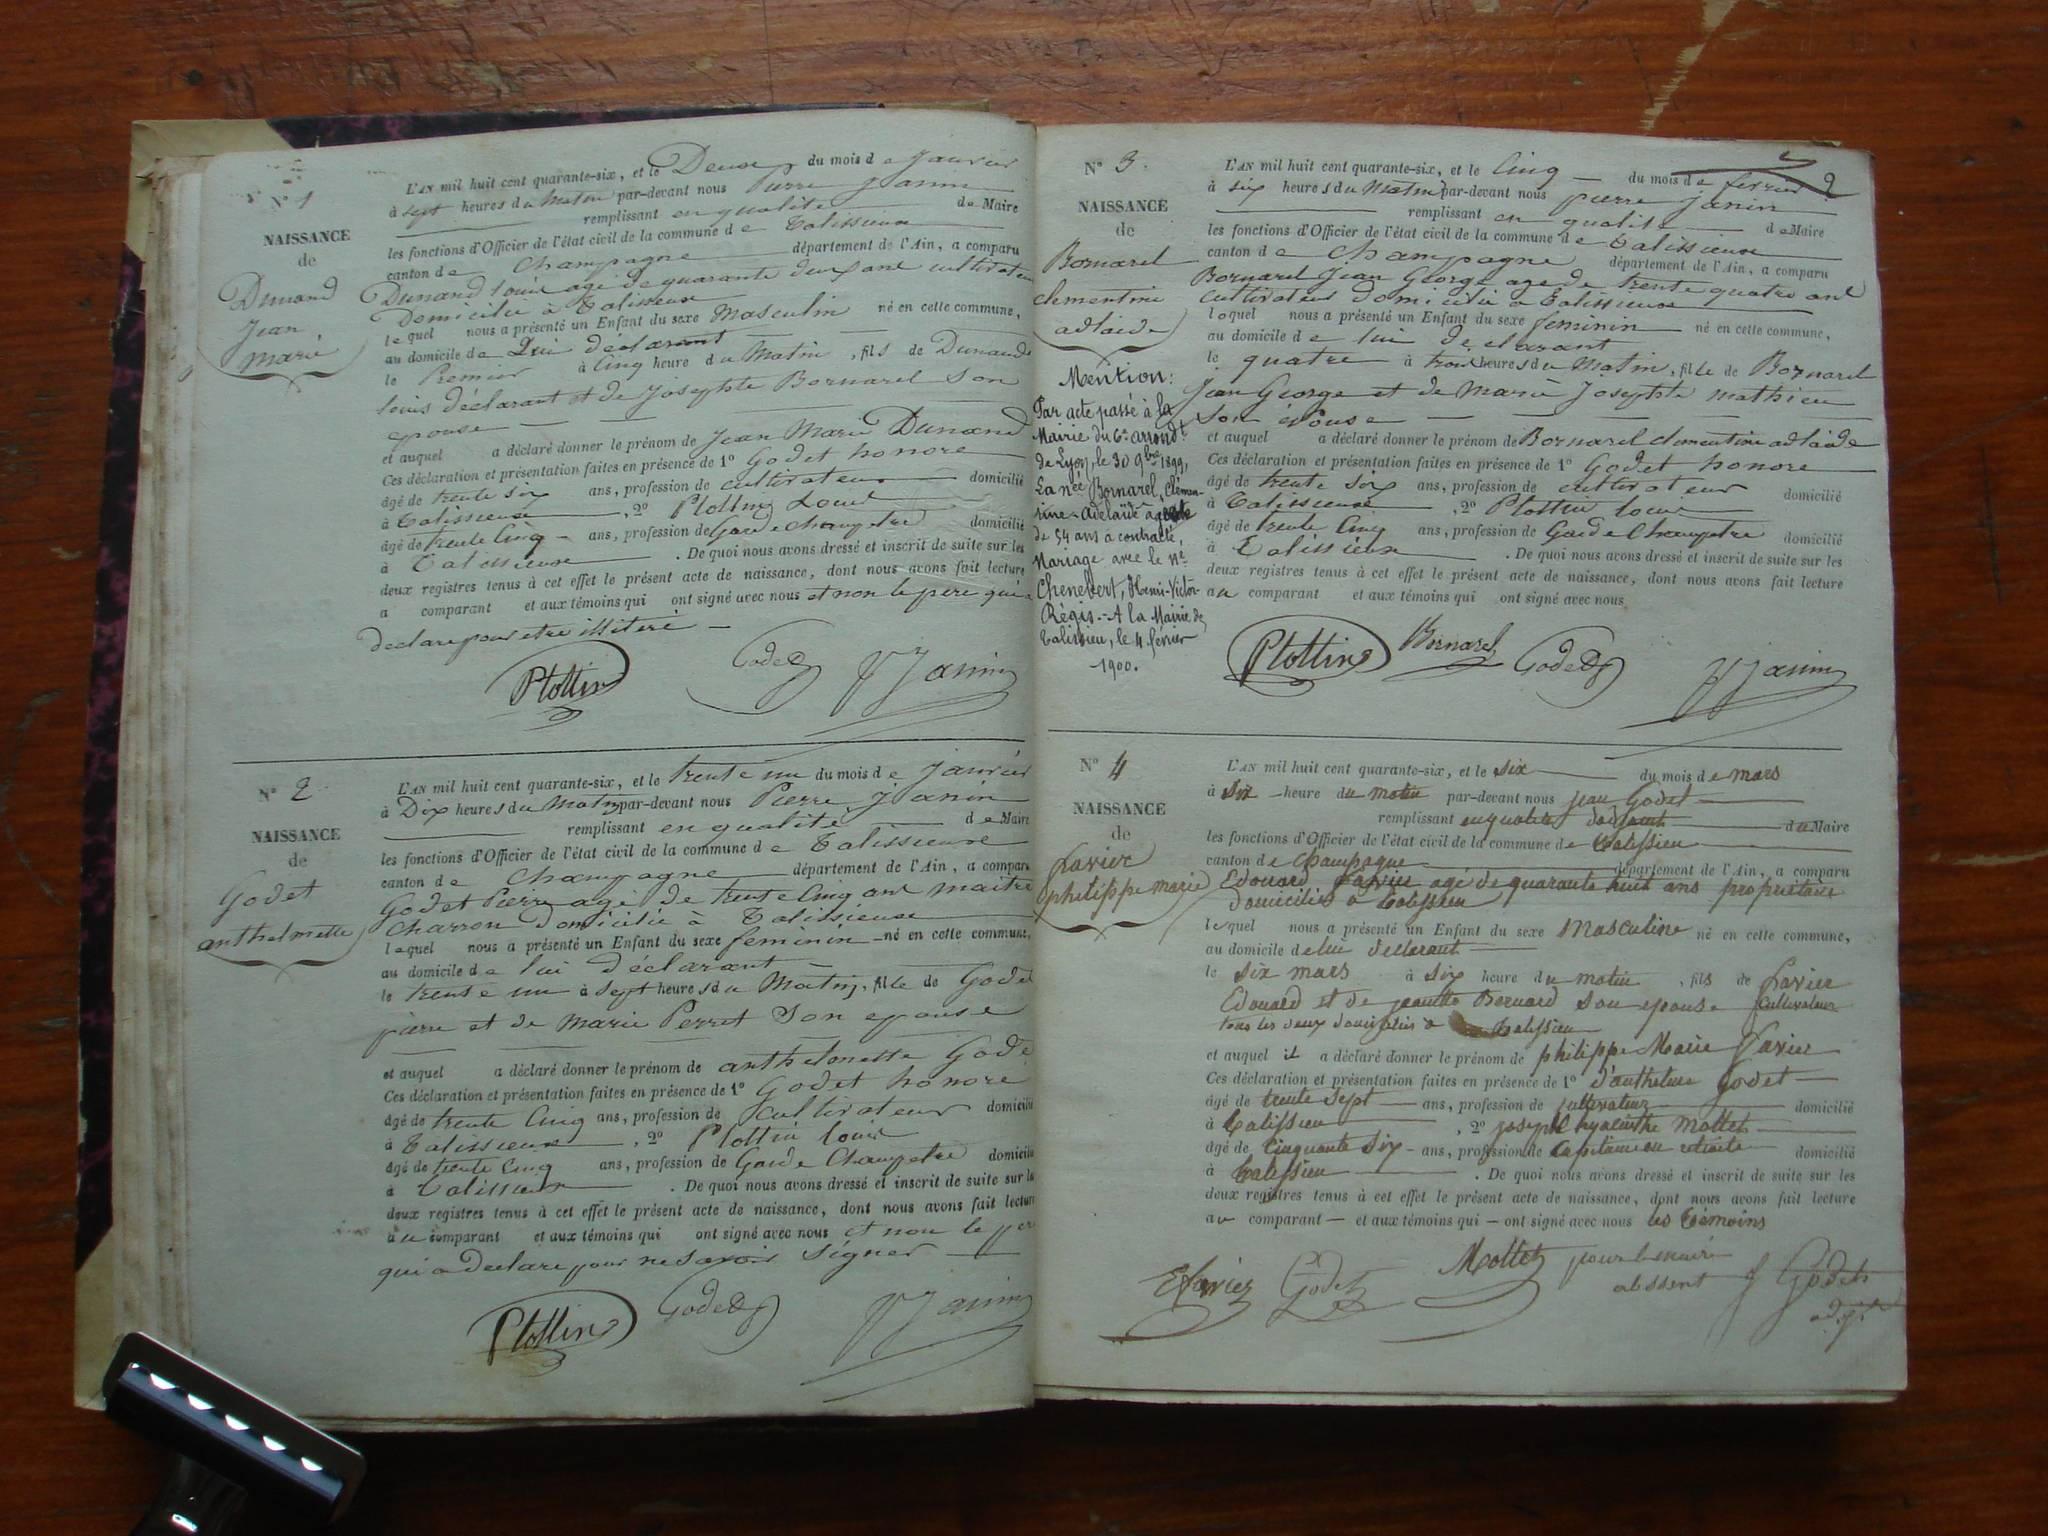 N° 1
NAISSANCE
de
Dunand
Jean
marie
L'AN mil huit cent quarante-six, et le Deux du mois de Janvier
à sept heures du Matin par-devant nous Pierre Janin
remplissant en qualité de Maire
les fonctions d'Officier de l'état civil de la commune de Talissieux
canton de Champagne département de l'Ain, a comparu
Dunand louis agé de quarante deux ans cultivateur
Domicilié à Talissieux
lequel nous a présenté un Enfant du sexe Masculin né en cette commune,
au domicile de Lui déclarant
le Premier à Cinq heure du Matin, fils de Dunand
louis déclarant et de Josephte Bornarel Son
epouse
et auquel a déclaré donner le prénom de Jean Marie Dunand
Ces déclaration et présentation faites en présence de 1° Godet honore
âgé de trente six ans, profession de cultivateur domicilié
à Talissieux, 2° Plottin Louis
âgé de trente Cinq ans, profession de Garde champetre domicilié
à Talissieux. De quoi nous avons dressé et inscrit de suite sur les
deux registres tenus à cet effet le présent acte de naissance, dont nous avons fait lecture
a comparant et aux témoins qui ont signé avec nous et non le père qui a
declare pour etre illiteré
Plottin Godet PJanin
N° 2
NAISSANCE
de
Godet
anthelmette
L'AN mil huit cent quarante-six, et le trente un du mois de Janvier
à Dix heures du Matin par-devant nous Pierre Janin
remplissant en qualité de Maire
les fonctions d'Officier de l'état civil de la commune de Talissieux
canton de Champagne département de l'Ain, a comparu
Godet Pierre agé de trente Cinq ans maitre
Charron domicilié à Talissieux
lequel nous a présenté un Enfant du sexe feminin né en cette commune,
au domicile de lui déclarant
le trente un à sept heures du Matin, fille de Godet
pierre et de Marie Perret Son epouse
et auquel a déclaré donner le prénom de anthelmette Godet
Ces déclaration et présentation faites en présence de 1° Godet honore
âgé de trente Cinq ans, profession de cultivateur domicilié
à Talissieux, 2° Plottin louis
âgé de trente Cinq ans, profession de Garde Champetre domicilié
à Talissieux. De quoi nous avons dressé et inscrit de suite sur les
deux registres tenus à cet effet le présent acte de naissance, dont nous avons fait lecture
au comparant et aux témoins qui ont signé avec nous et non le per
qui a declare pour ne savoir Signer
Plottin Godet PJanin
2
N° 3
NAISSANCE
de
Bornarel
clementine
adlaide
Mention:
Par acte passé à la
Mairie du 6e arrondt
de Lyon, le 30 9bre 1899,
La née Bornarel, Clémen-
tine-Adelaïde agée
de 54 ans a contracté
Mariage avec le né
Chenevert, Henri-Victor-
Régis.- A la Mairie de
Talissieu, le 4 février
1900.
L'AN mil huit cent quarante-six, et le Cinq du mois de fevrier
à six heures du Matin par-devant nous pierre Janin
remplissant en qualité de Maire
les fonctions d'Officier de l'état civil de la commune de Talissieux
canton de Champagne département de l'Ain, a comparu
Bornarel Jean George age de trente quatre ans
cultivateur domicilié a Talissieux
lequel nous a présenté un Enfant du sexe feminin né en cette commune,
au domicile de lui declarant
le quatre à trois heures du Matin, fille de Bornarel
Jean George et de Marie Josephte mathieu
Son épouse
et auquel a déclaré donner le prénom de Bornarel clementine adlaide
Ces déclaration et présentation faites en présence de 1° Godet honore
âgé de trente six ans, profession de cultivateur domicilié
à Talissieux, 2° Plottin louis
âgé de trente Cinq ans, profession de Garde Champetre domicilié
à Talissieux. De quoi nous avons dressé et inscrit de suite sur les
deux registres tenus à cet effet le présent acte de naissance, dont nous avons fait lecture
au comparant et aux témoins qui ont signé avec nous
Plottin Bornarel Godet PJanin
N° 4
NAISSANCE
de
Lavier
philippe marie
L'AN mil huit cent quarante-six, et le six du mois de mars
à six heure du matin par-devant nous jean Godet
remplissant en qualité d'adjoint du Maire
les fonctions d'Officier de l'état civil de la commune de talissieu
canton de champagne département de l'Ain, a comparu
Edouard Lavier agé de quarante huit ans propriétaire
domicilié a talissieu
lequel nous a présenté un Enfant du sexe Masculine né en cette commune,
au domicile de lui declarant
le six mars à six heure du matin, fils de Lavier
Edouard et de jeanette Bernard son epouse cultivateur
tous les deux domiciliés a talissieu
et auquel il a déclaré donner le prénom de philippe Marie Lavier
Ces déclaration et présentation faites en présence de 1° d'anthelme Godet
âgé de trente sept ans, profession de cultivateur domicilié
à talissieu, 2° joseph hyacinthe Mottet
âgé de Cinquante Six ans, profession de Capitaine en retraite domicilié
à talissieu. De quoi nous avons dressé et inscrit de suite sur les
deux registres tenus à cet effet le présent acte de naissance, dont nous avons fait lecture
au comparant et aux témoins qui ont signé avec nous les témoins
ELavier Godet Mottet pour le maire
absent J Godet
adjt